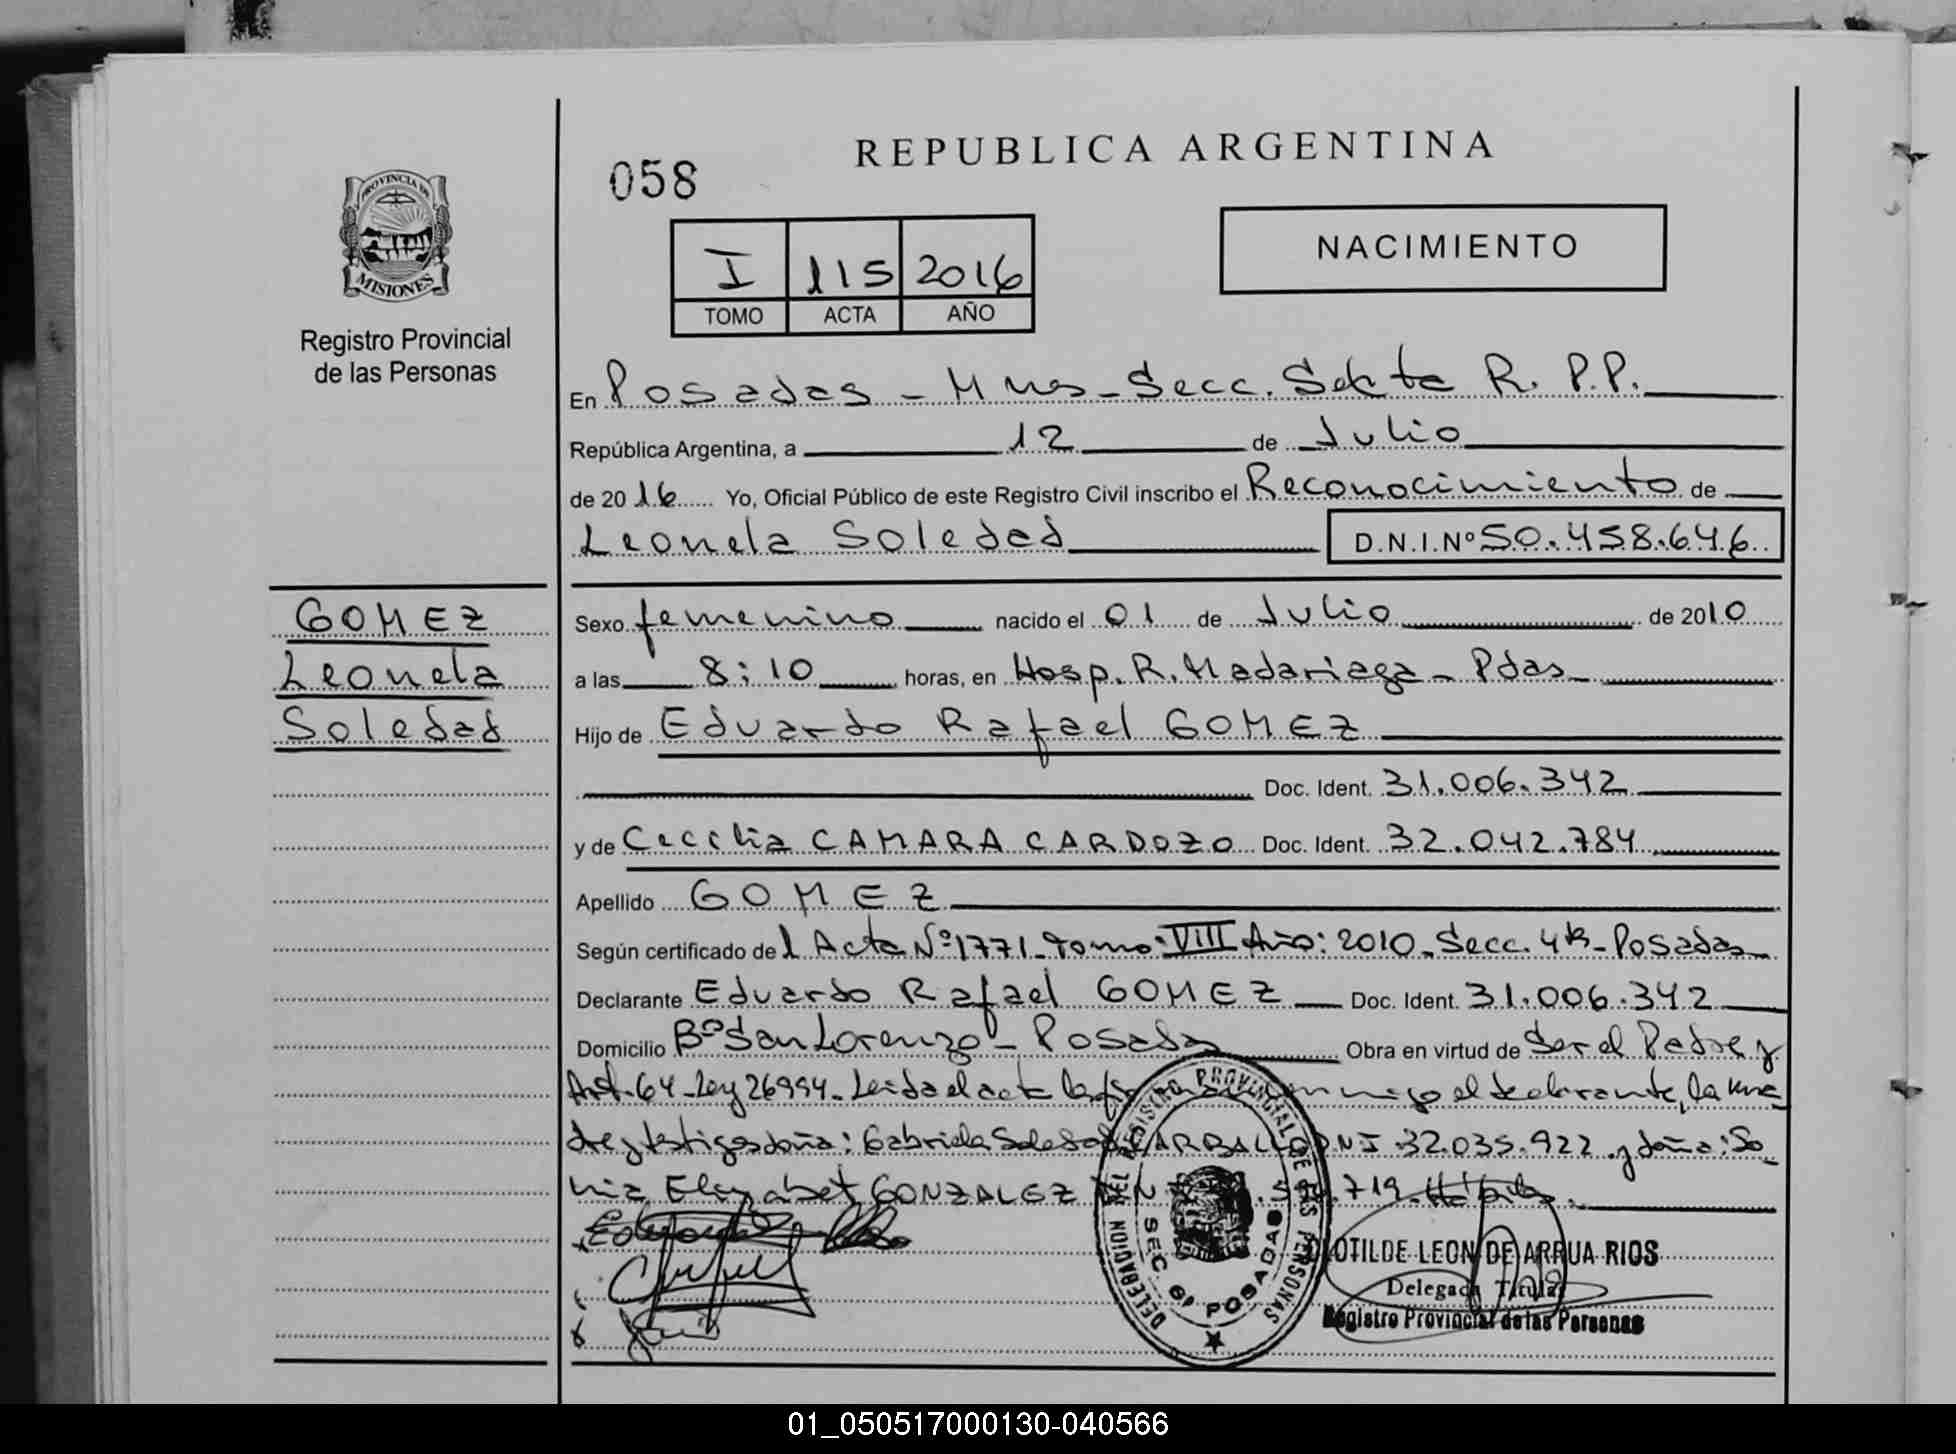 REPUBLICA ARGENTINA
058
NACIMIENTO
I 115 2016
TOMO ACTA AÑO
PROVINCIA DE
MISIONES
Registro Provincial
de las Personas
En Posadas - Mnes - Secc. Sexta R. P. P.
República Argentina, a 12 de Julio
de 2016 Yo, Oficial Público de este Registro Civil inscribo el Reconocimiento de
Leonela Soledad D.N.I.Nº 50.458.646
GOMEZ
Leonela
Soledad
Sexo femenino nacido el 01 de Julio de 2010
a las 8:10 horas, en Hosp. R. Madariaga - Pdas
Hijo de Eduardo Rafael GOMEZ
Doc. Ident. 31.006.342
y de Cecilia CAMARA CARDOZO Doc. Ident. 32.042.784
Apellido GOMEZ
Según certificado del Acta Nº 1771 - Tomo: VIII Año: 2010 - Secc. 4ta - Posadas
Declarante Eduardo Rafael GOMEZ Doc. Ident. 31.006.342
Domicilio Bº San Lorenzo - Posadas Obra en virtud de Ser el Padre y
Art. 64 - Ley 26994 - Leida el acta la conmigo el declarante, la ma
dre y testigos doña: Gabriela Soledad CARBALLO DNI 32.035.922 y doña: So
nia Elizabet GONZALEZ .719. Hábiles.
DELEGACION DEL REGISTRO PROVINCIAL DE LAS PERSONAS
SEC. 6ª POSADAS
CLOTILDE LEON DE ARRUA RIOS
Delegada Titular
Registro Provincial de las Personas
01_050517000130-040566